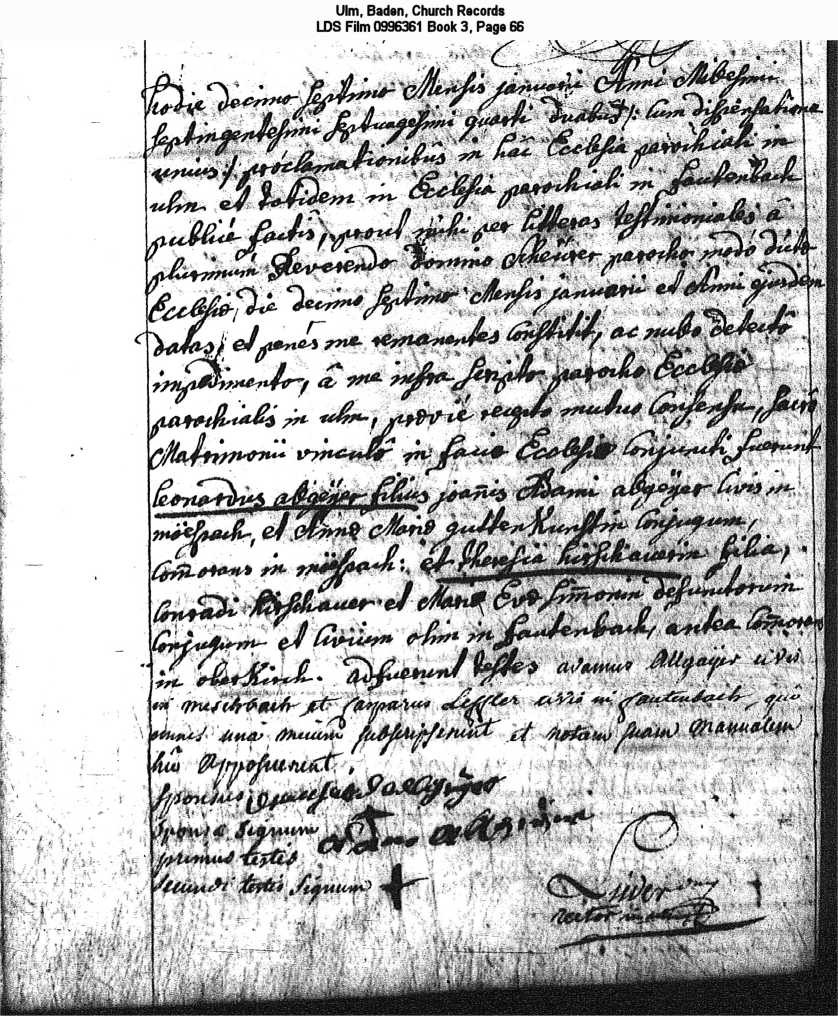 Ulm, Baden, Church Records
LDS Film 0996361 Book 3, Page 66
hodie decimo septimo Mensis januarii Anni Milesimi
septingentesimi septuagesimi quarti duabus /: cum dispensatione
unius :/ proclamationibus in hac Ecclesia parochiali in
ulm et totidem in Ecclesia parochiali in fautenbach
publicè factis, prout mihi per litteras testimoniales â
plurimum Reverendo Domino Scheürer parocho modò dicto
Ecclesiæ, die decimo septimo Mensis januarii et Anni ejusdem
datas, et penes me remanentes constitit, ac nullo detecto
impedimento, â me infra scripto parocho Ecclesiæ
parochialis in ulm, previè requisito mutuo consensu, sacro
Matrimonii vinculô in facie Ecclesiæ conjuncti fuerunt
leonardus algeÿer filius joañis Adami algeÿer civis in
möespach, et Annæ Mariæ guttenkunstin conjugum,
com̃orans in möespach: et theresia hirschauerin filia,
conradi hirschauer et Mariæ Evæ simonin defunctorum
conjugum et civium olim in fautenbach, antea com̃orans
in oberkirch. adfuerunt testes adamus Allgaÿer civis
in et casparus civis in fautenbach, qui
omnes una mecum subscripserunt et notam suam manualem
hic apposuerunt.
sponsus
sponsæ signum +
primus testis
secundi testis signum +
rector in